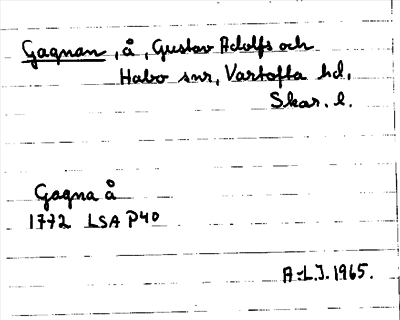 Gagnan, å, Gustav Adolfs och
Habo snr, Vartofta hd,
Skar. l.
Gagna å
1772 LSA P40
A-L.J. 1965.